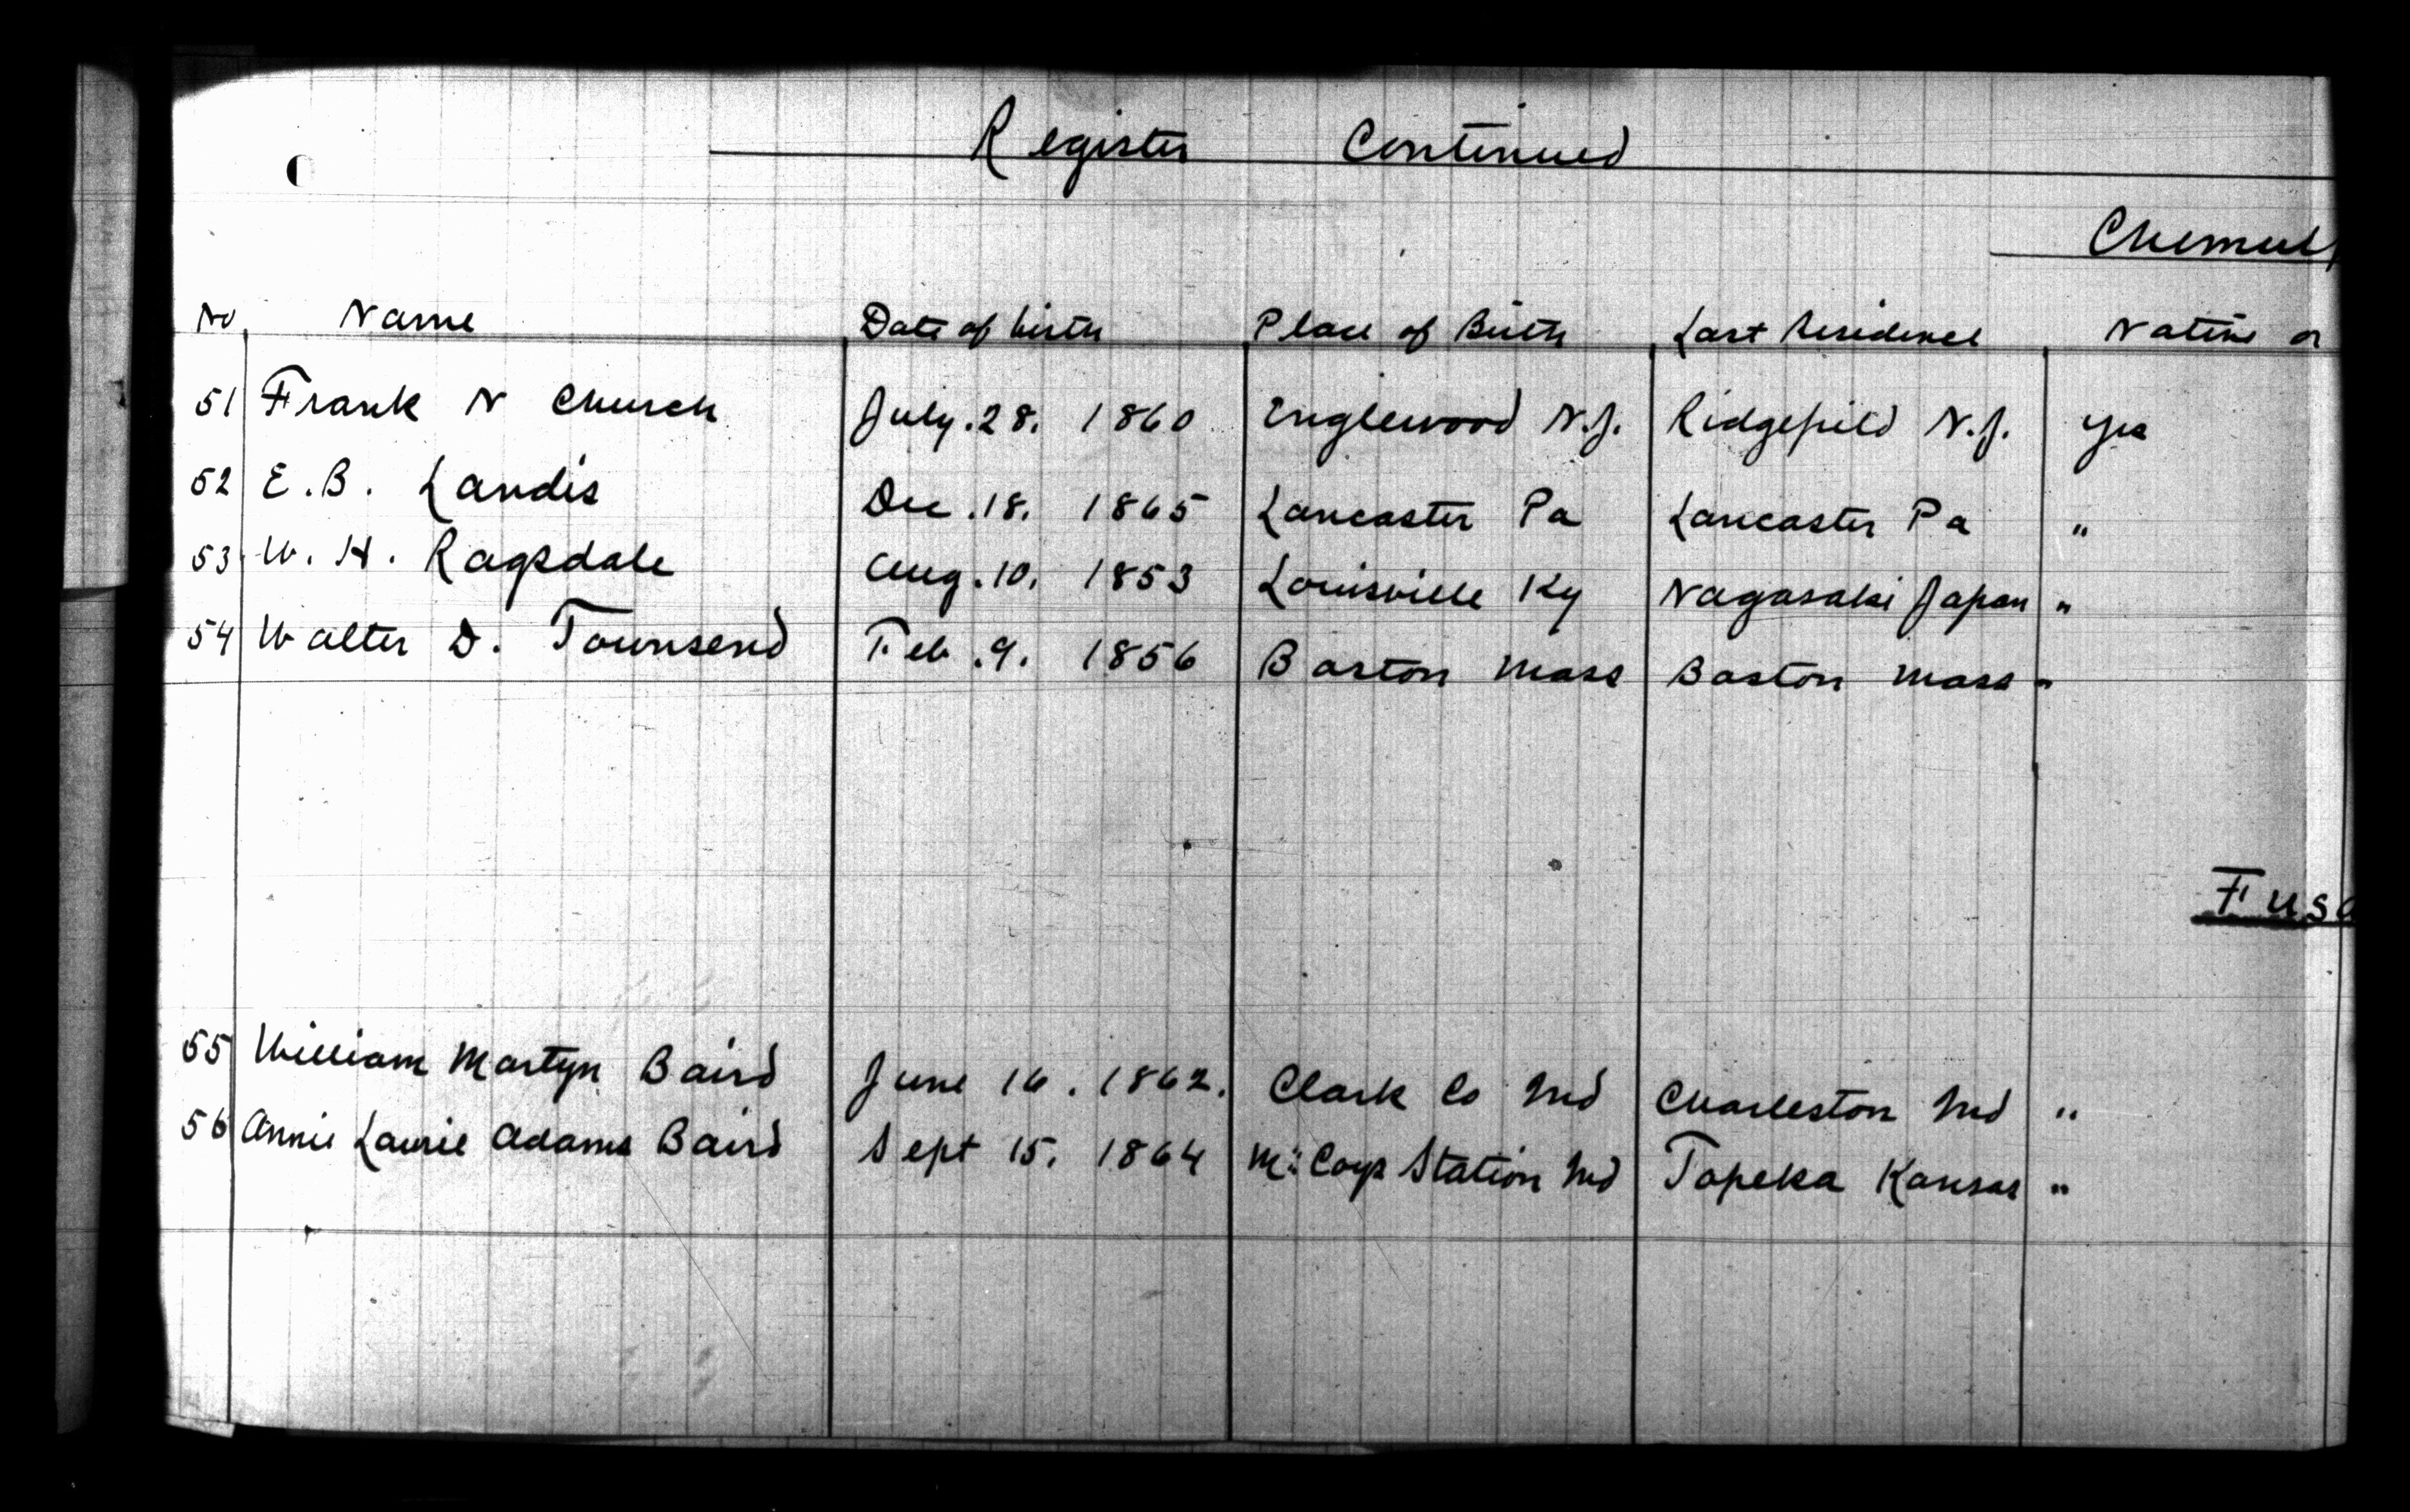 Register Continued
Chemul
No Name Date of birth Place of Birth Last Residence Native or
51 Frank N Church July. 28. 1860 Englewood N.J. Ridgefield N.J. Yes
52 E. B. Landis Dec. 18. 1865 Lancaster Pa Lancaster Pa "
53 W. H. Ragsdale Aug. 10. 1853 Louisville Ky Nagasaki Japan "
54 Walter D. Townsend Feb. 9. 1856 Boston Mass Boston Mass "
Fusa
55 William Martyn Baird June 16. 1862. Clark Co Ind Charleston Ind "
56 Annie Laurie Adams Baird Sept 15. 1864 Mc Coys Station Ind Topeka Kansas "